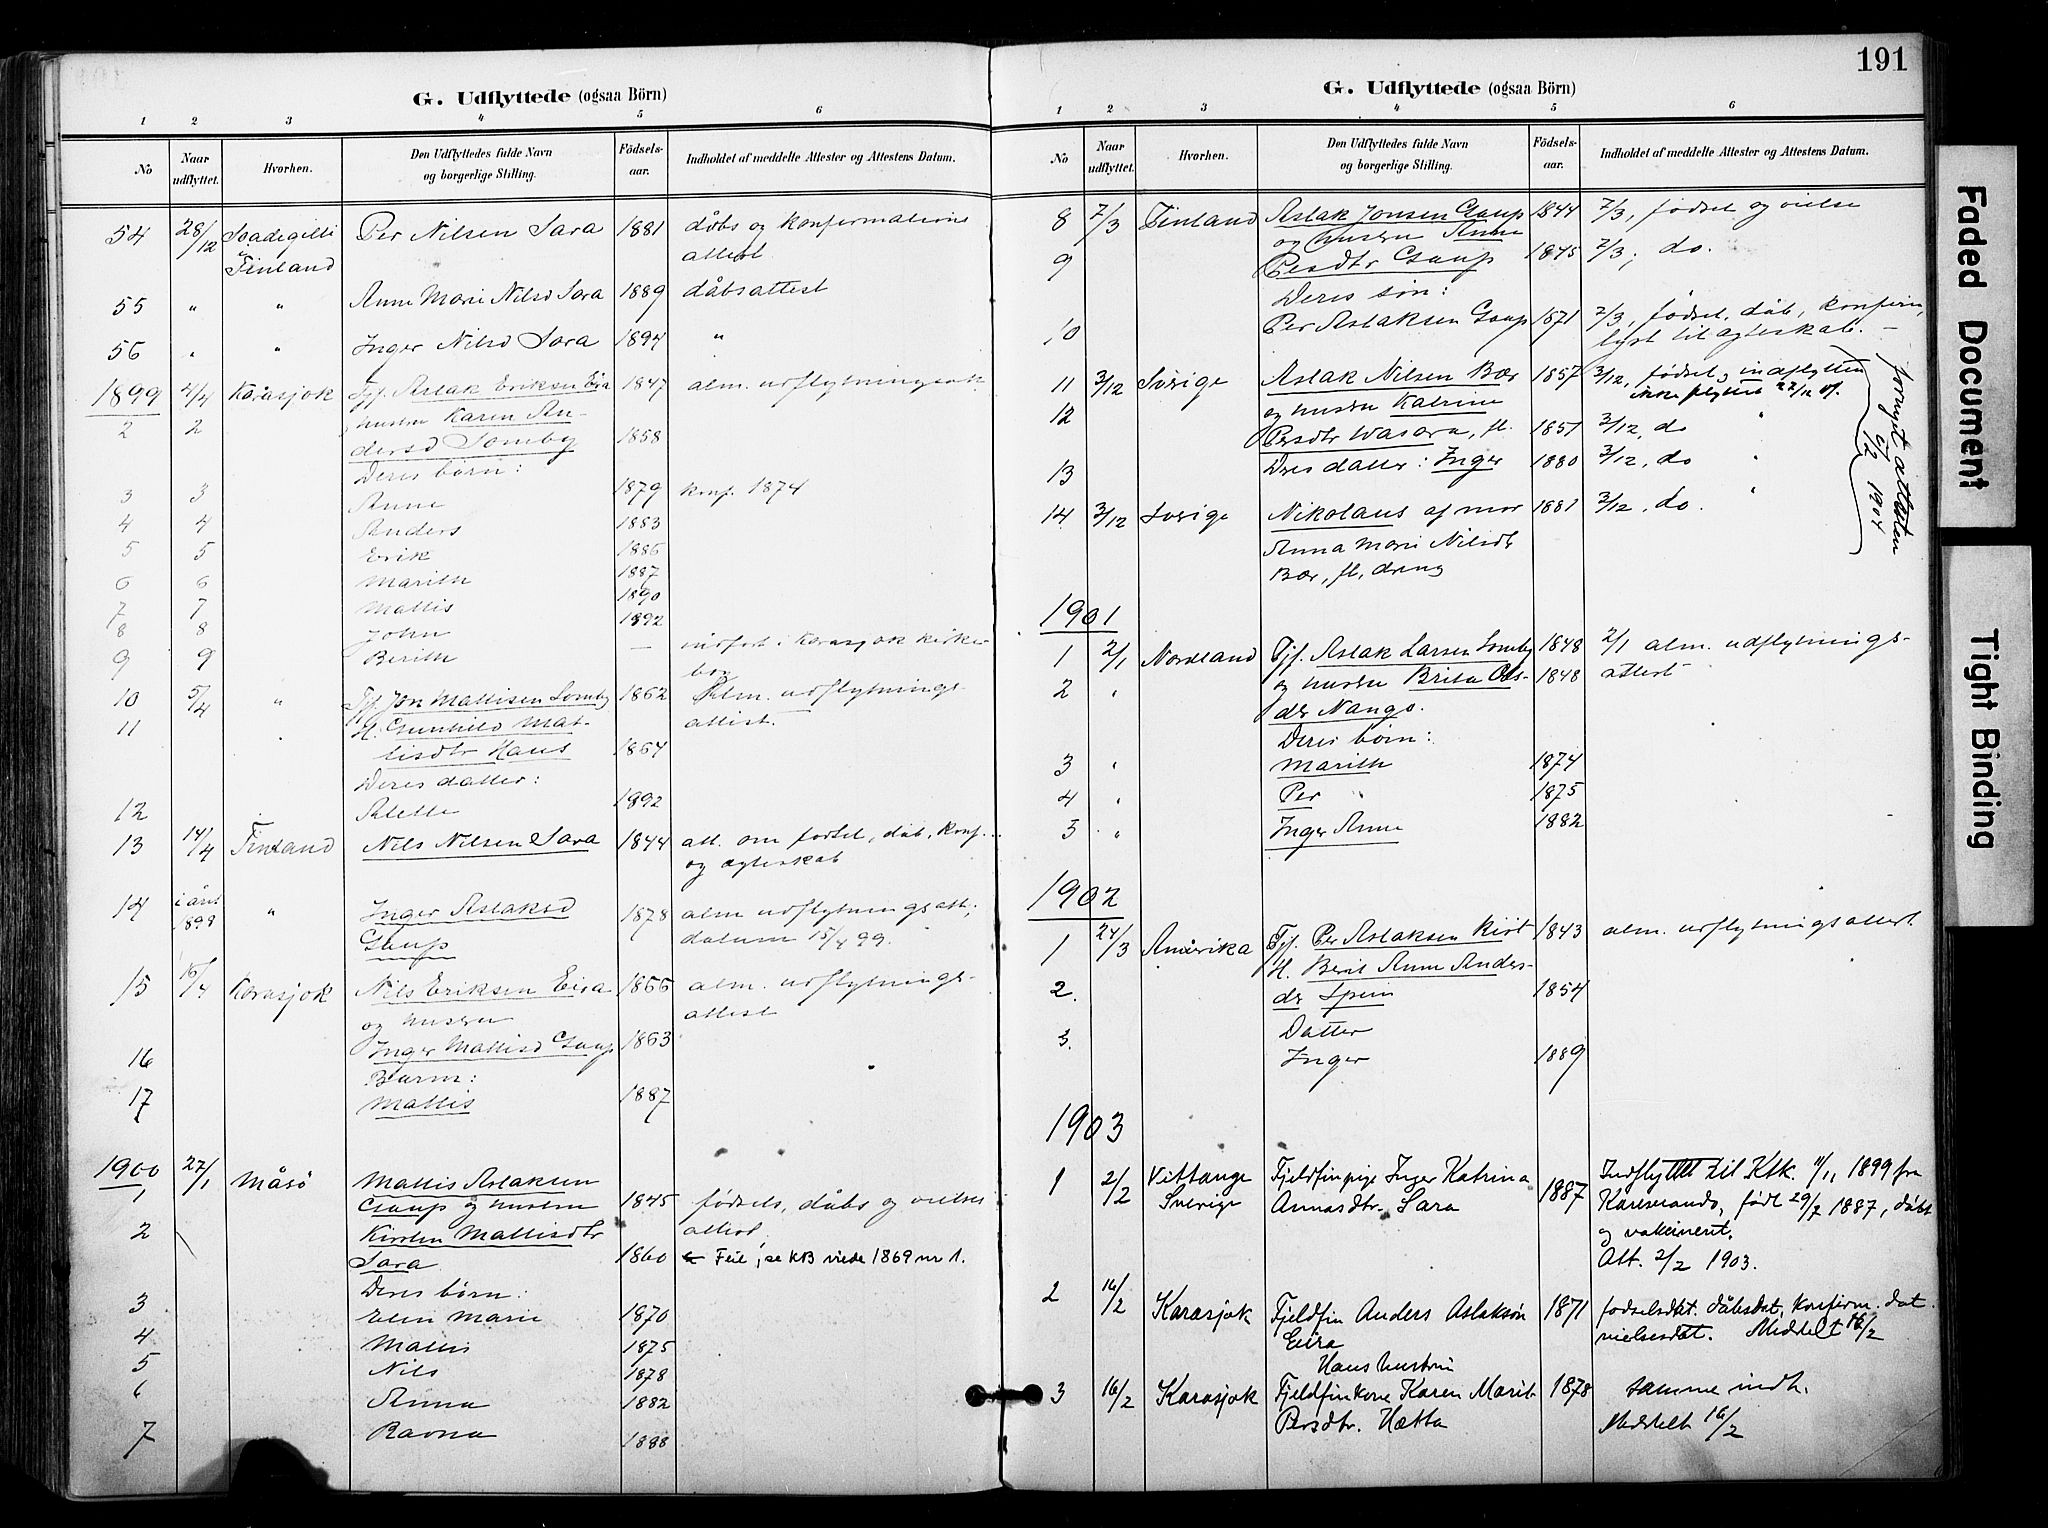 191
G. Udflyttede (ogsaa Börn)
1 2 3 4 5 6
No Naar udflyttet. Hvorhen. Den Udflyttedes fulde Navn og borgerlige Stilling. Födsels-aar. Indholdet af meddelte Attester og Attestens Datum.
54 28/12 Finland Per Nilsen Sara 1881 dåbs og konfirmations
attest
55 " " Anne Marie Nilsd Sara 1889 dåbsattest
56 " " Inger Nilsd Sara 1894 "
1899 2/4 Karasjok Fjf. Aslak Eriksen Eira 1847 alm. udflytningsatt.
2 2 hustru Karen An-
dersd Somby 1858
Deres børn:
3 3 Anne 1879 konf. 1874
4 4 Anders 1883
5 5 Erik 1886
6 6 Marith 1887
7 7 Mattis 1890
8 8 John 1892
9 9 Berith — indført i Karasjok kirke-
bog
10 5/4 " Fjf. Jon Mattisen Somby 1862 Alm. udflytnings-
11 " H. Gunhild Mat- attest.
tisdtr Haus 1864
Deres datter:
12 1892
13 14/4 Finland Nils Nilsen Sara 1844 att. om fødsel, dåb, konf.
og ægteskab
14 i året 1898 " Inger Aslaksd 1878 alm udflytningsatt;
Gaup datum 15/4 99.
15 15/4 Karasjok Nils Eriksen Eira 1866 alm. udflytnings-
og hustru attest
16 Inger Mattisd Gaup 1863
Barn:
17 Mattis 1887
1900
1 27/1 Måsö Mattis Aslaksen
Gaup og hustru 1845 fødsels, dåbs og vielses
2 Kirsten Mattisdtr attest.
Sara 1860 ← Feil, se KB viede 1869 nr 1.
Deres børn:
3 Elen Marie 1870
4 Mattis 1875
5 Nils 1878
6 Anna 1882
7 Ravna 1888
G. Udflyttede (ogsaa Börn)
1 2 3 4 5 6
No Naar udflyttet. Hvorhen. Den Udflyttedes fulde Navn og borgerlige Stilling. Födsels-aar. Indholdet af meddelte Attester og Attestens Datum.
8 7/3 Finland Aslak Jonsen Gaup 1844 7/3, fødsel og vielse
og hustru Anne
9 Persdtr Gaup 1845 7/3, do.
Deres søn:
10 Per Aslaksen Gaup 1871 7/3, fødsel, dåb, konfirm,
lyst til ægteskab. —
11 3/12 Sverige Aslak Nilsen Bær 1857 3/12, fødsel, indflytten
ikke flyttet 22/12
12 og hustru Katrine
Persdtr Wasara, fl. 1851 3/12, do "
13 Deres datter: Inger 1880 3/12, do "
14 3/12 Sverige Nikolaus af mor 1881 3/12, do. "
Anna Marie Nilsdtr
Bær, fl. dreng
fornyet attesten
5/2 1904
1901
1 2/1 Nordland Fjf. Aslak Larsen Somby 1848 2/1 alm. udflytnings-
2 " og hustru Brita Ols- 1848 attest
dtr Nango.
Deres børn:
3 " Marith 1874
4 " Per 1875
3 " Inger Anne 1882
1902
1 24/3 Amerika Fjf. Per Aslaksen Kist 1843 alm. udflytningsattest
H. Berit Anne Anders-
2. dtr Spein 1854
3. Datter
Inger 1889
1903
1 2/2 Vittange Fjeldfinpige Inger Katrina 1887 Indflyttet til Ktk. 11/11 1899 fra
Sverige Annasdtr. Sara Karesuando, født 29/7 1887, døbt
og vakcineret.
Att. 2/2 1903.
2 16/2 Karasjok Fjeldfin Anders Aslaksøn 1871 fødselsdat. dåbsdat, konfirm. dat.
Eira vielsesdat. Meddelt 16/2
Hans hustru
3 16/2 Karasjok Fjeldfinkone Karen Marit 1878 samme indh.
Persdtr. Hætta Meddelt 16/2
Faded Document
Tight Binding